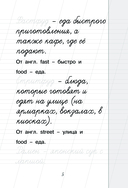 - еда быстрого
приготовления, а
также кафе, где её
подают.
От англ. fast – быстро и
food – еда.
- блюда,
которые готовят и
едят на улице (на
ярмарках, вокзалах, в
киосках).
От англ. street – улица и
food – еда.